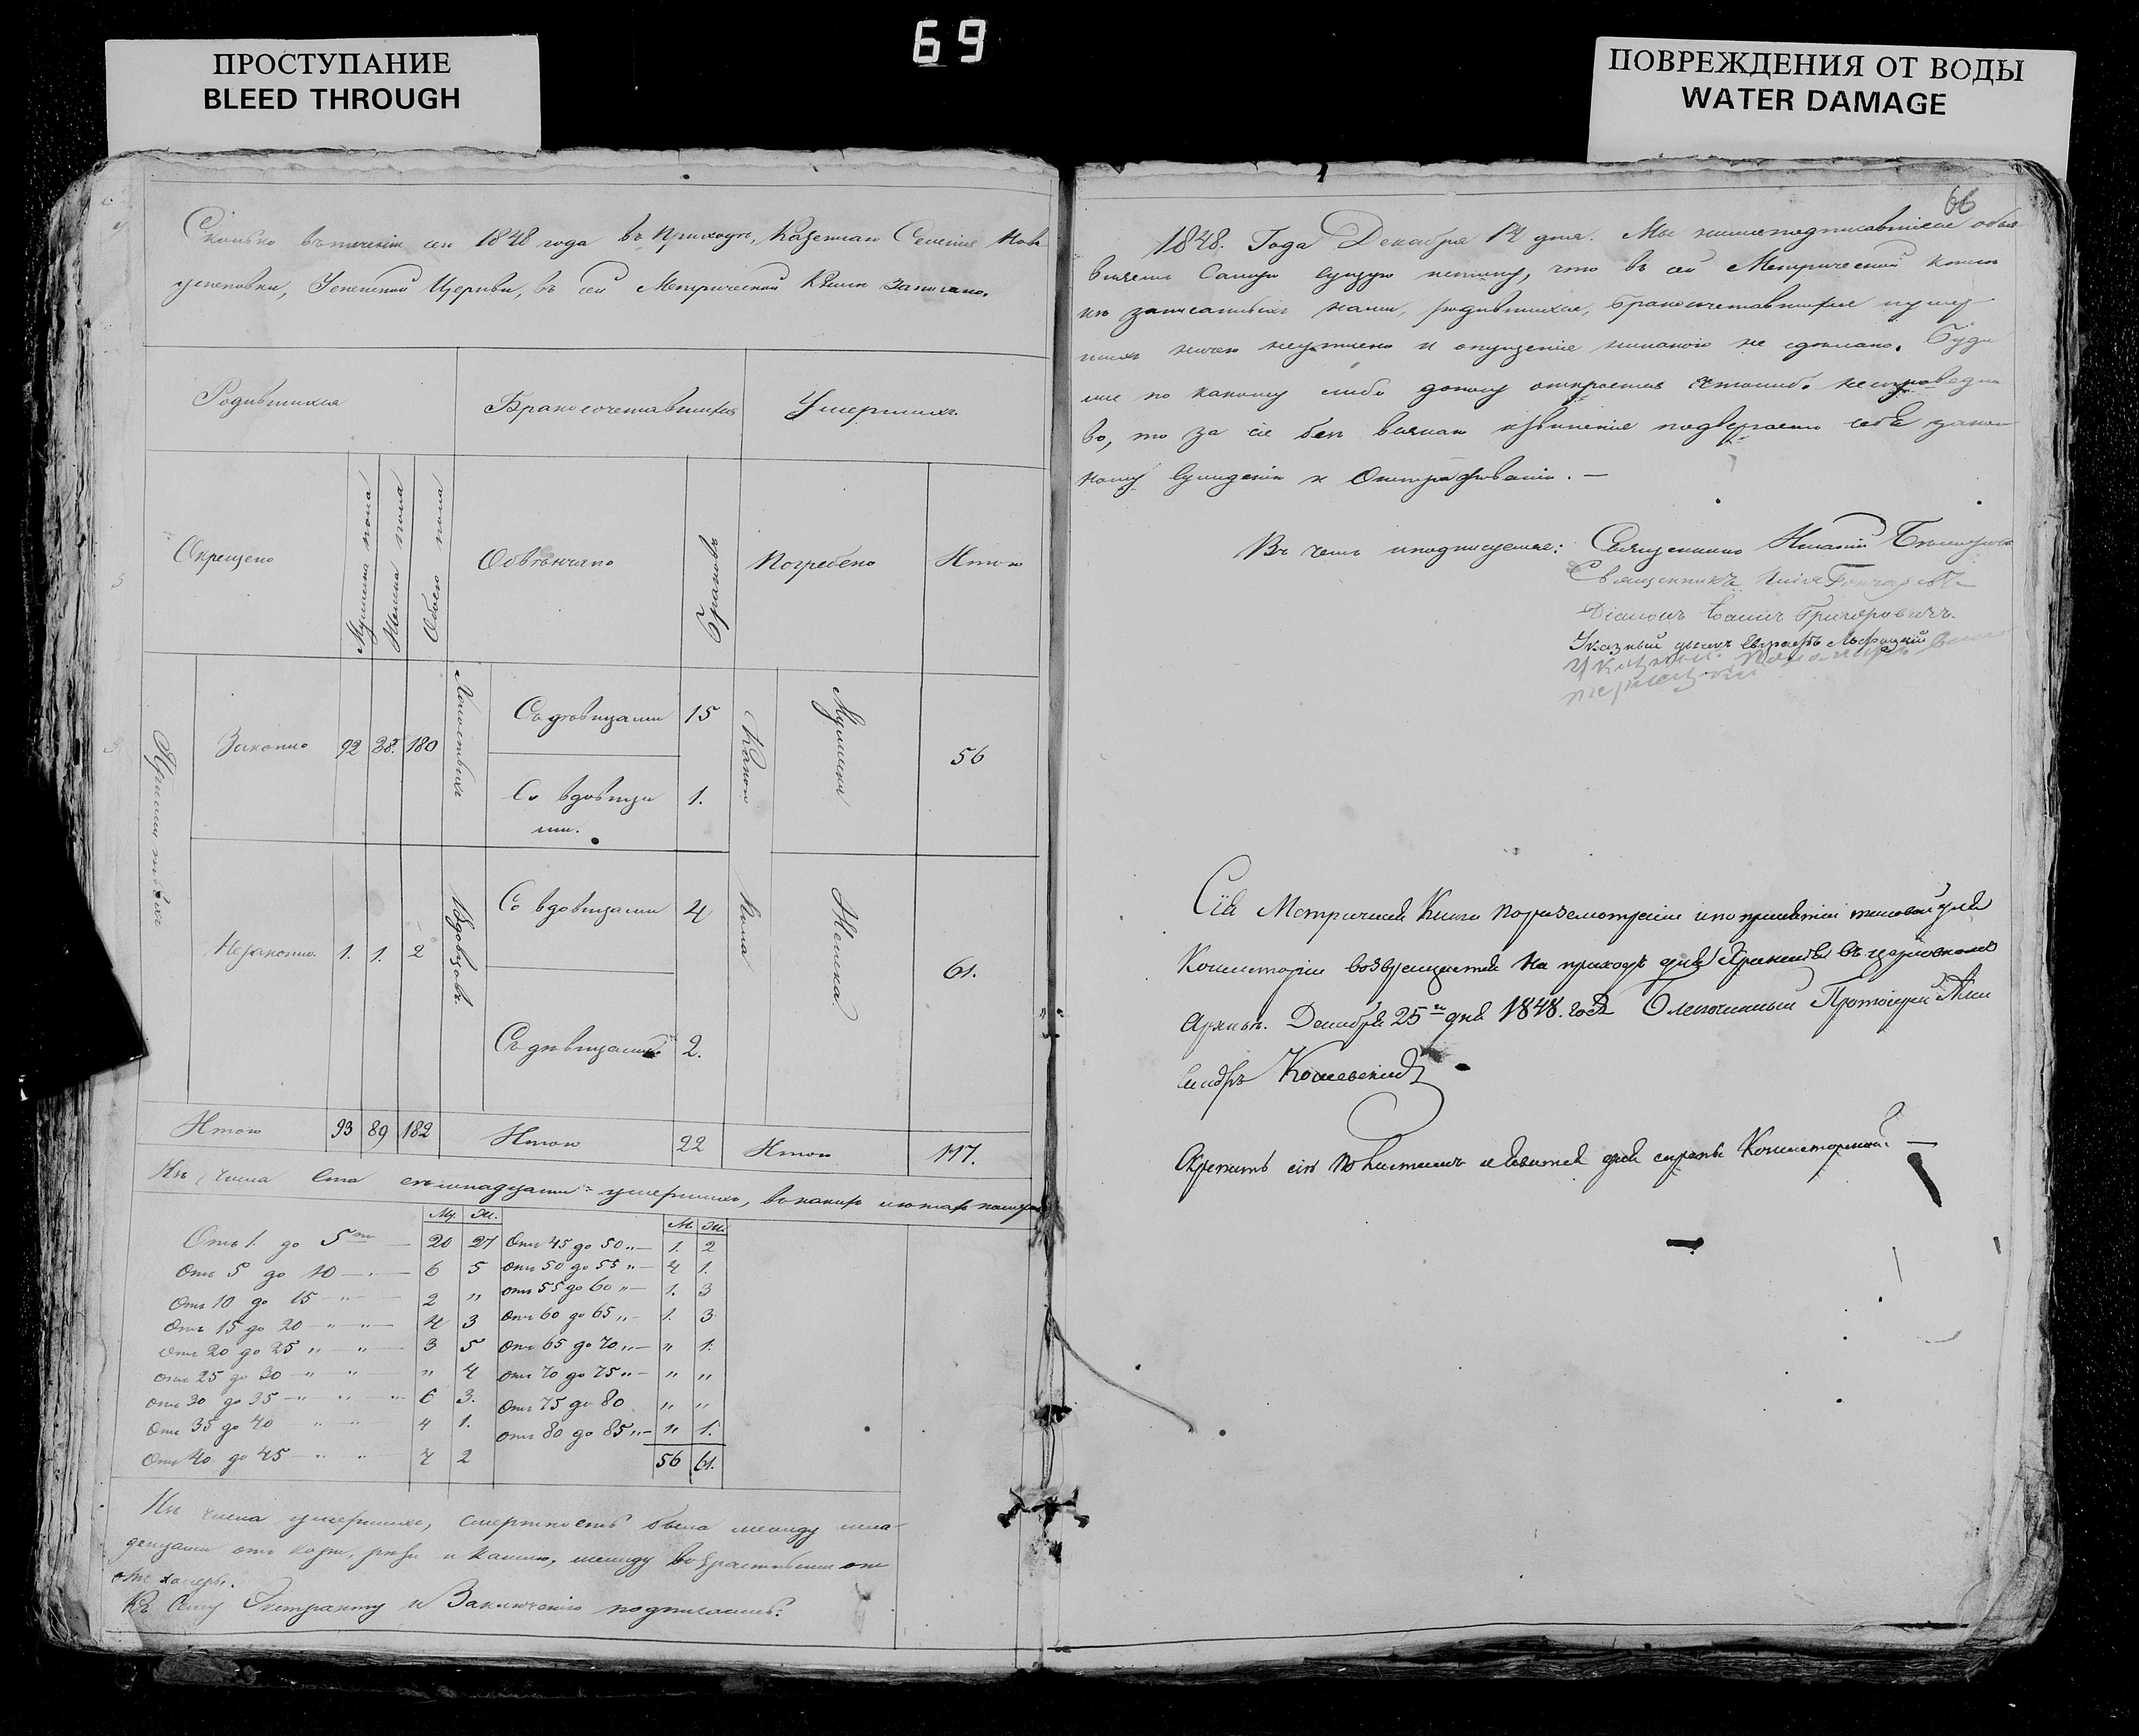 69
ПРОСТУПАНИЕ
BLEED THROUGH
ПОВРЕЖДЕНИЯ ОТ ВОДЫ
WATER DAMAGE
Сколько въ теченіи сего 1848 года въ приходѣ, Казеннаго Селенія Ново
успеновки, Успенской Церкви, въ сей Метрической Книгѣ записано.
Родившихся Бракосочетавшихся Умершихъ
Окрещено Мужеска пола Женска пола Обоего пола Обвѣнчано Браковъ Погребено Итого
Законно 92 28. 180 Холостыхъ Съ дѣвицами 15 Мужеска 56
Со вдовица
ми. 1.
Незаконно 1. 1. 2 Вдовцовъ Со вдовицами 4 пола Женска 61.
Съ дѣвицами 2.
Итого 93 89 182 Итого 22 Итого 117.
Изъ числа ста семьнадцати умершихъ, въ какихъ
Му. Же. М. Же.
Отъ 1. до 5 ти 20 27 Отъ 45 до 50 „ 1. 2
Отъ 5 до 10 6 5 Отъ 50 до 55 „ 4 1.
Отъ 10 до 15 „ 2 „ отъ 55 до 60 „ 1. 3
Отъ 15 до 20 „ „ 4 3 Отъ 60 до 65 „ 1. 3
Отъ 20 до 25 „ „ 3 5 Отъ 65 до 70 „ „ 1.
Отъ 25 до 30 „ „ „ 4 Отъ 70 до 75 „ „ „
Отъ 30 до 35 „ „ „ 6 3. Отъ 75 до 80 „ „
Отъ 35 до 40 „ „ 4 1. отъ 80 до 85 „ „ 1.
Отъ 40 до 45 „ „ 7 2 56 61.
Изъ числа умершихъ, смертность была между мла-
денцами отъ кори, и кашлю, между возрастными
отъ холеры.
Къ Сему Экстракту и Заключенію подписались:
66
1848. Года Декабря 12 дня. Мы нижеподписавшіеся объя
вляемъ самую сущую истину, что въ сей Метрической книгѣ
изъ записанныхъ нами, родившихся, бракосочетавшихся и умер
шихъ никого неутаено и опущенія никакого не сдѣлано. Буде
же по какому либо доносу откроется несправедли
во, то за сіе безъ всякаго извиненія подвергаемъ себя закон
ному сужденію и Оштрафованію. —
Въ чемъ и подписуемся: Священникъ
Священникъ Илія Гончаровъ
Діаконъ Іоаннъ Григоровичъ.
Указный дьячекъ
Указный Пономарь
Сія Метрическая Книга по разсмотреніи и по принятіи таковой для
Консисторіи возвращается на приходъ для храненія въ церковномъ
Архивѣ. Декабря 25 го дня 1848. года Благочинный Протоіерей Алек
сандръ
Скрепить сію по листамъ для Консисторской. —